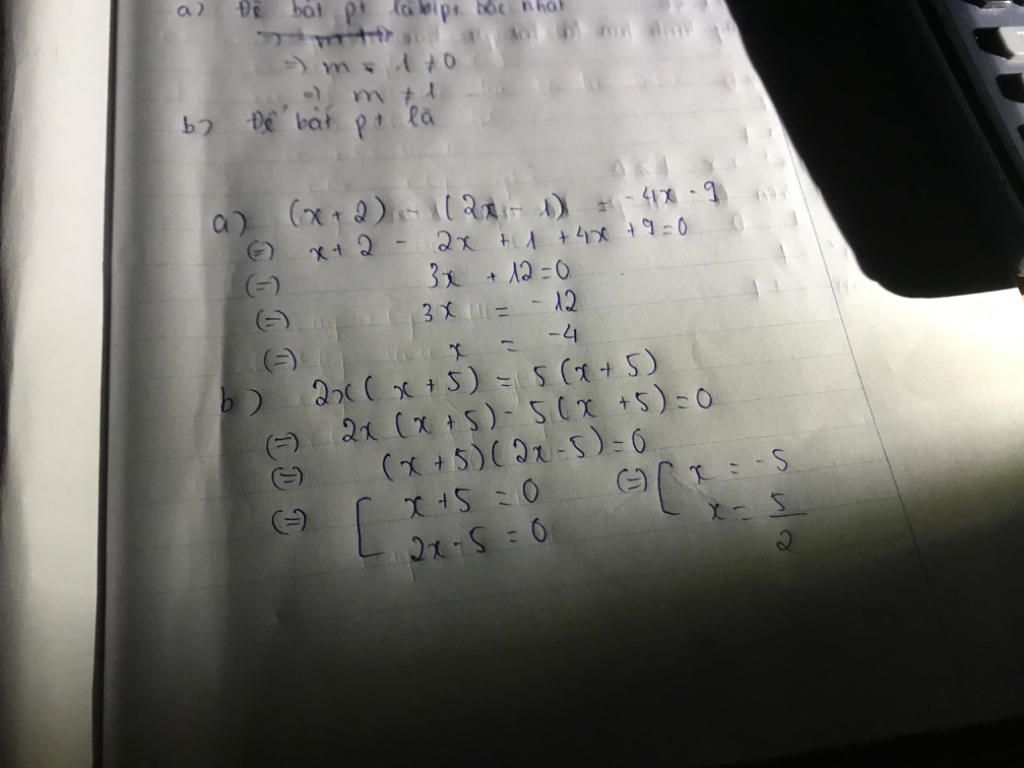 a) Để bất pt là bpt bậc nhất
=) m - 1 ≠ 0
=) m ≠ 1
b) Để bất pt là
a) (x + 2) - (2x - 1) = -4x - 9
(=) x + 2 - 2x + 1 + 4x + 9 = 0
(=) 3x + 12 = 0
(=) 3x = -12
(=) x = -4
b) 2x(x + 5) = 5(x + 5)
(=) 2x(x + 5) - 5(x + 5) = 0
(=) (x + 5)(2x - 5) = 0
(=) [ x + 5 = 0 (=) [ x = -5
2x - 5 = 0 x = 5/2